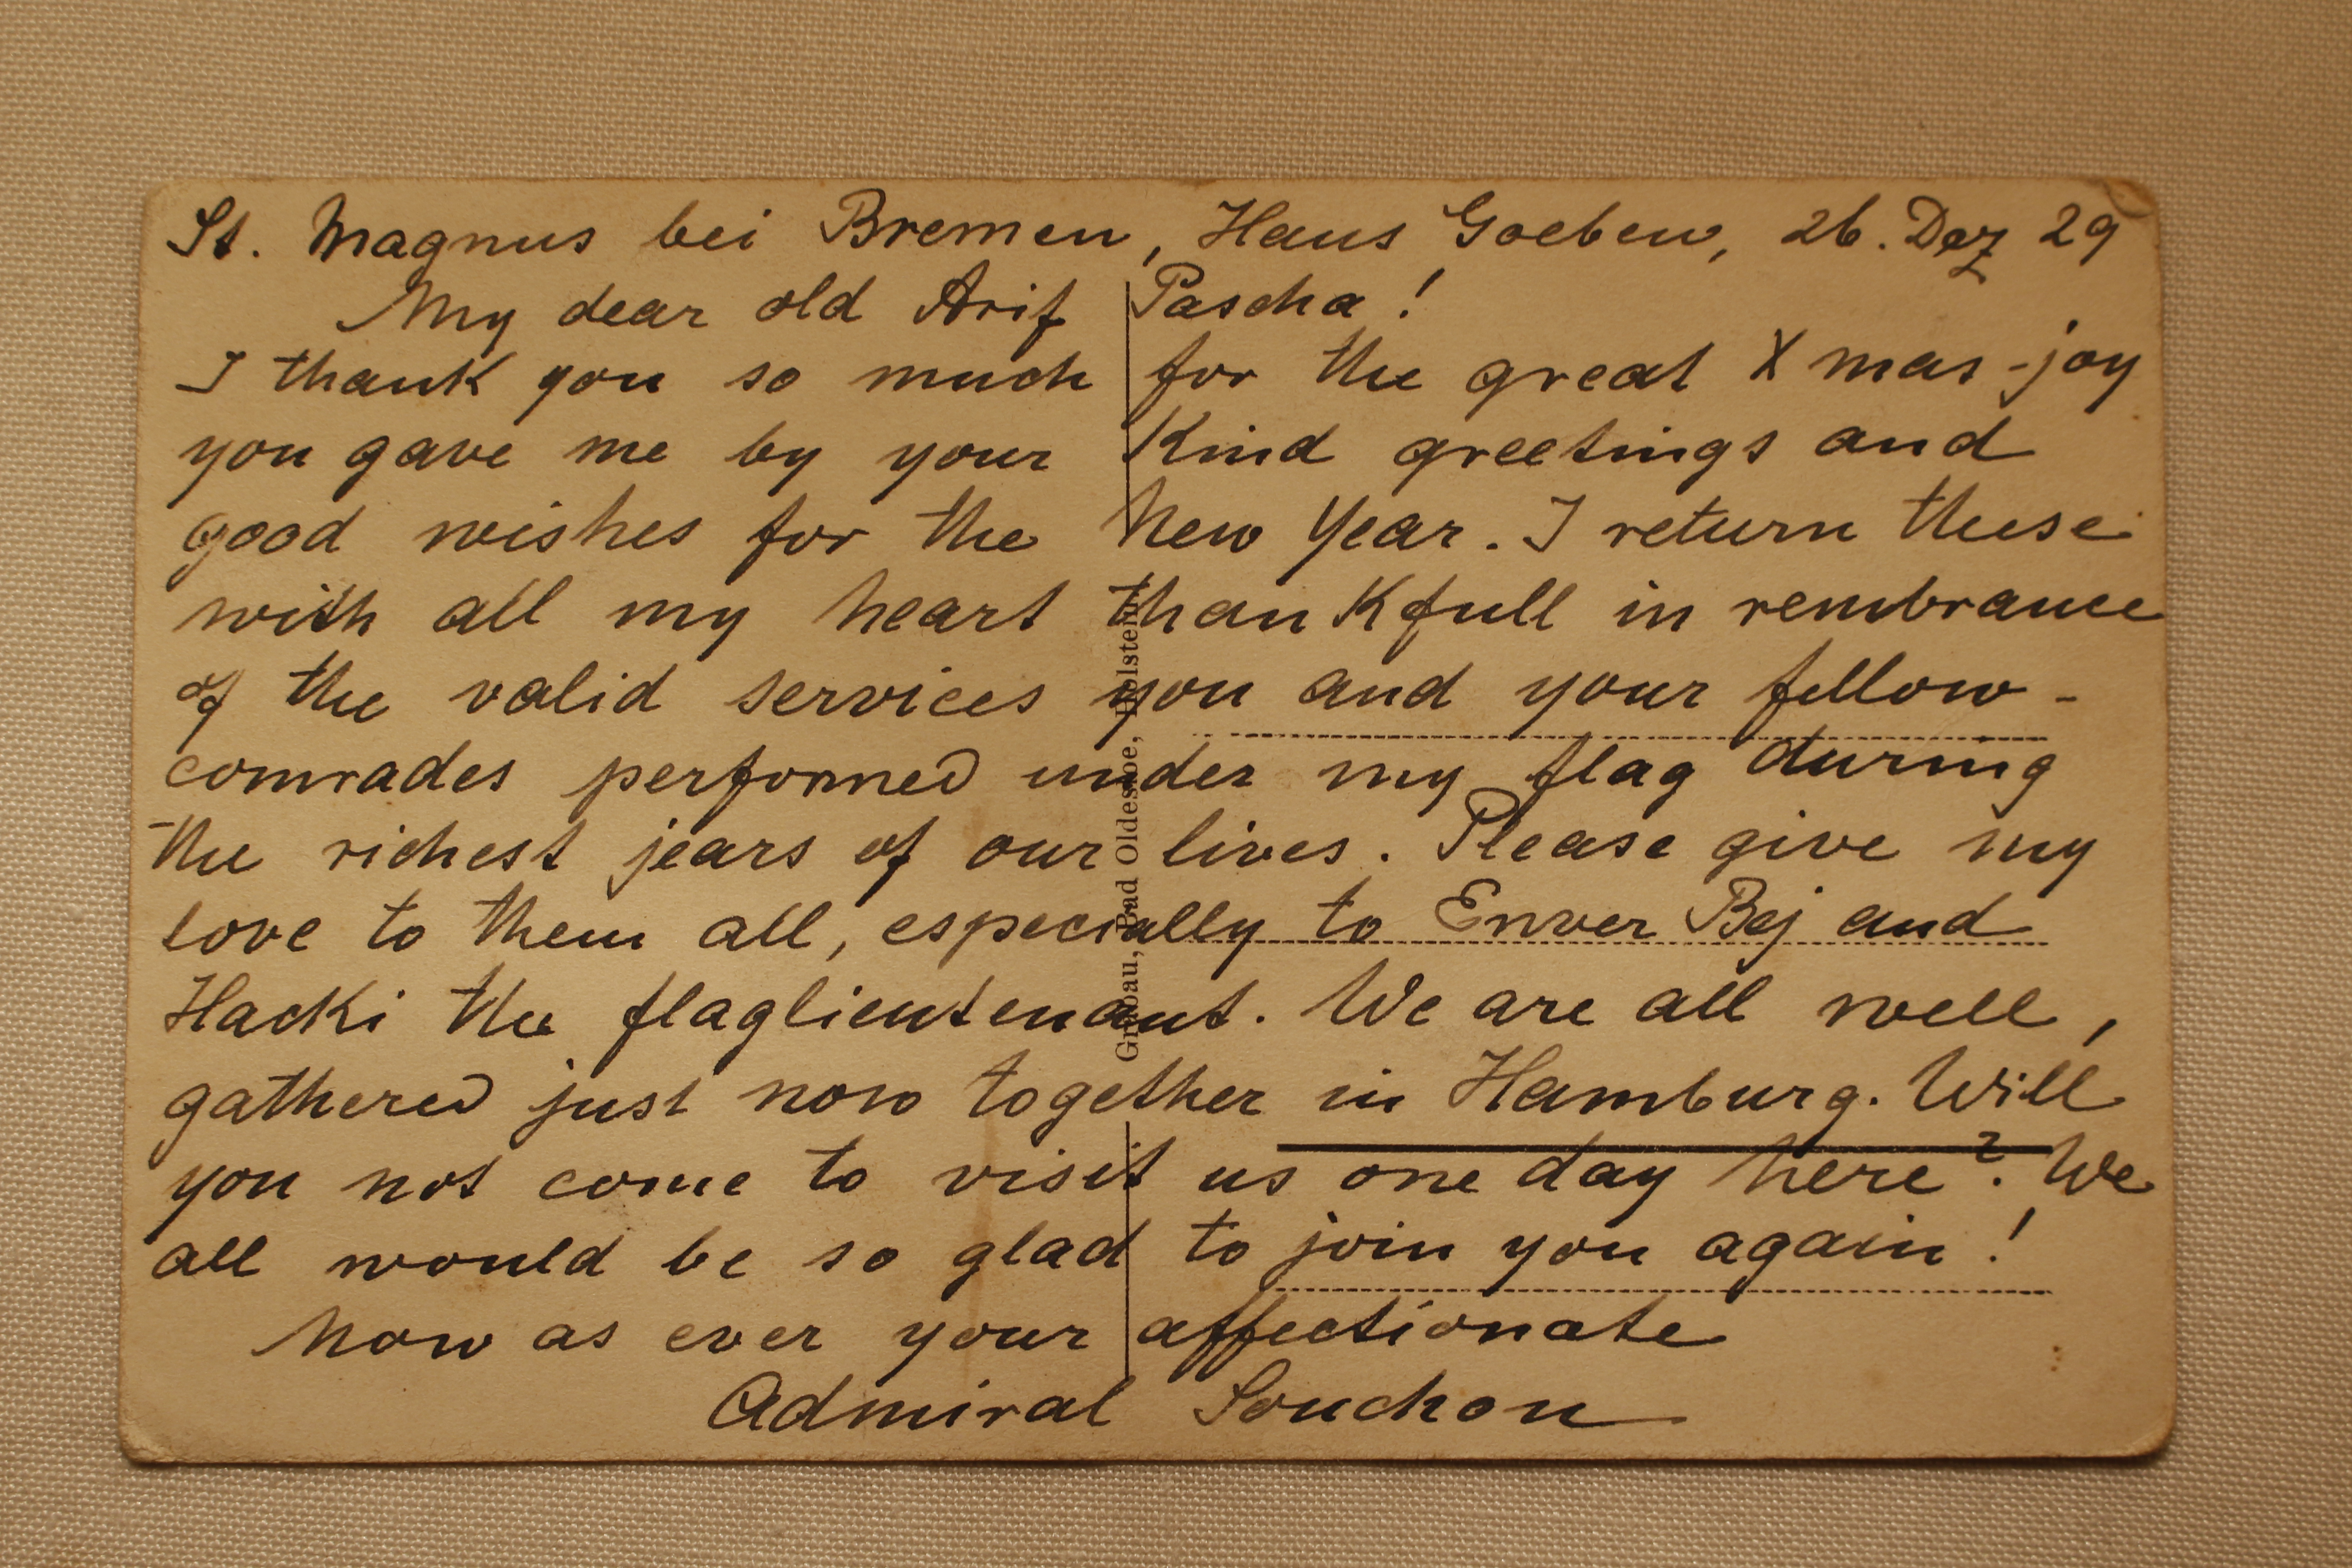 St. Magnus bei Bremen, Haus Goeben, 26. Dez 29
My dear old Arif Pascha!
I thank you so much for the great Xmas-joy
you gave me by your kind greetings and
good wishes for the New Year. I return these
with all my heart thankfull in rembrance
of the valid services you and your fellow-
comrades performed under my flag during
the richest jears of our lives. Please give my
love to them all, especially to Enver Bej and
Hacki the flaglieutenant. We are all well,
gathered just now together in Hamburg. Will
you not come to visit us one day here? We
all would be so glad to join you again!
Now as ever your affectionate
Admiral Souchon
Bad Oldesloe, Holstein